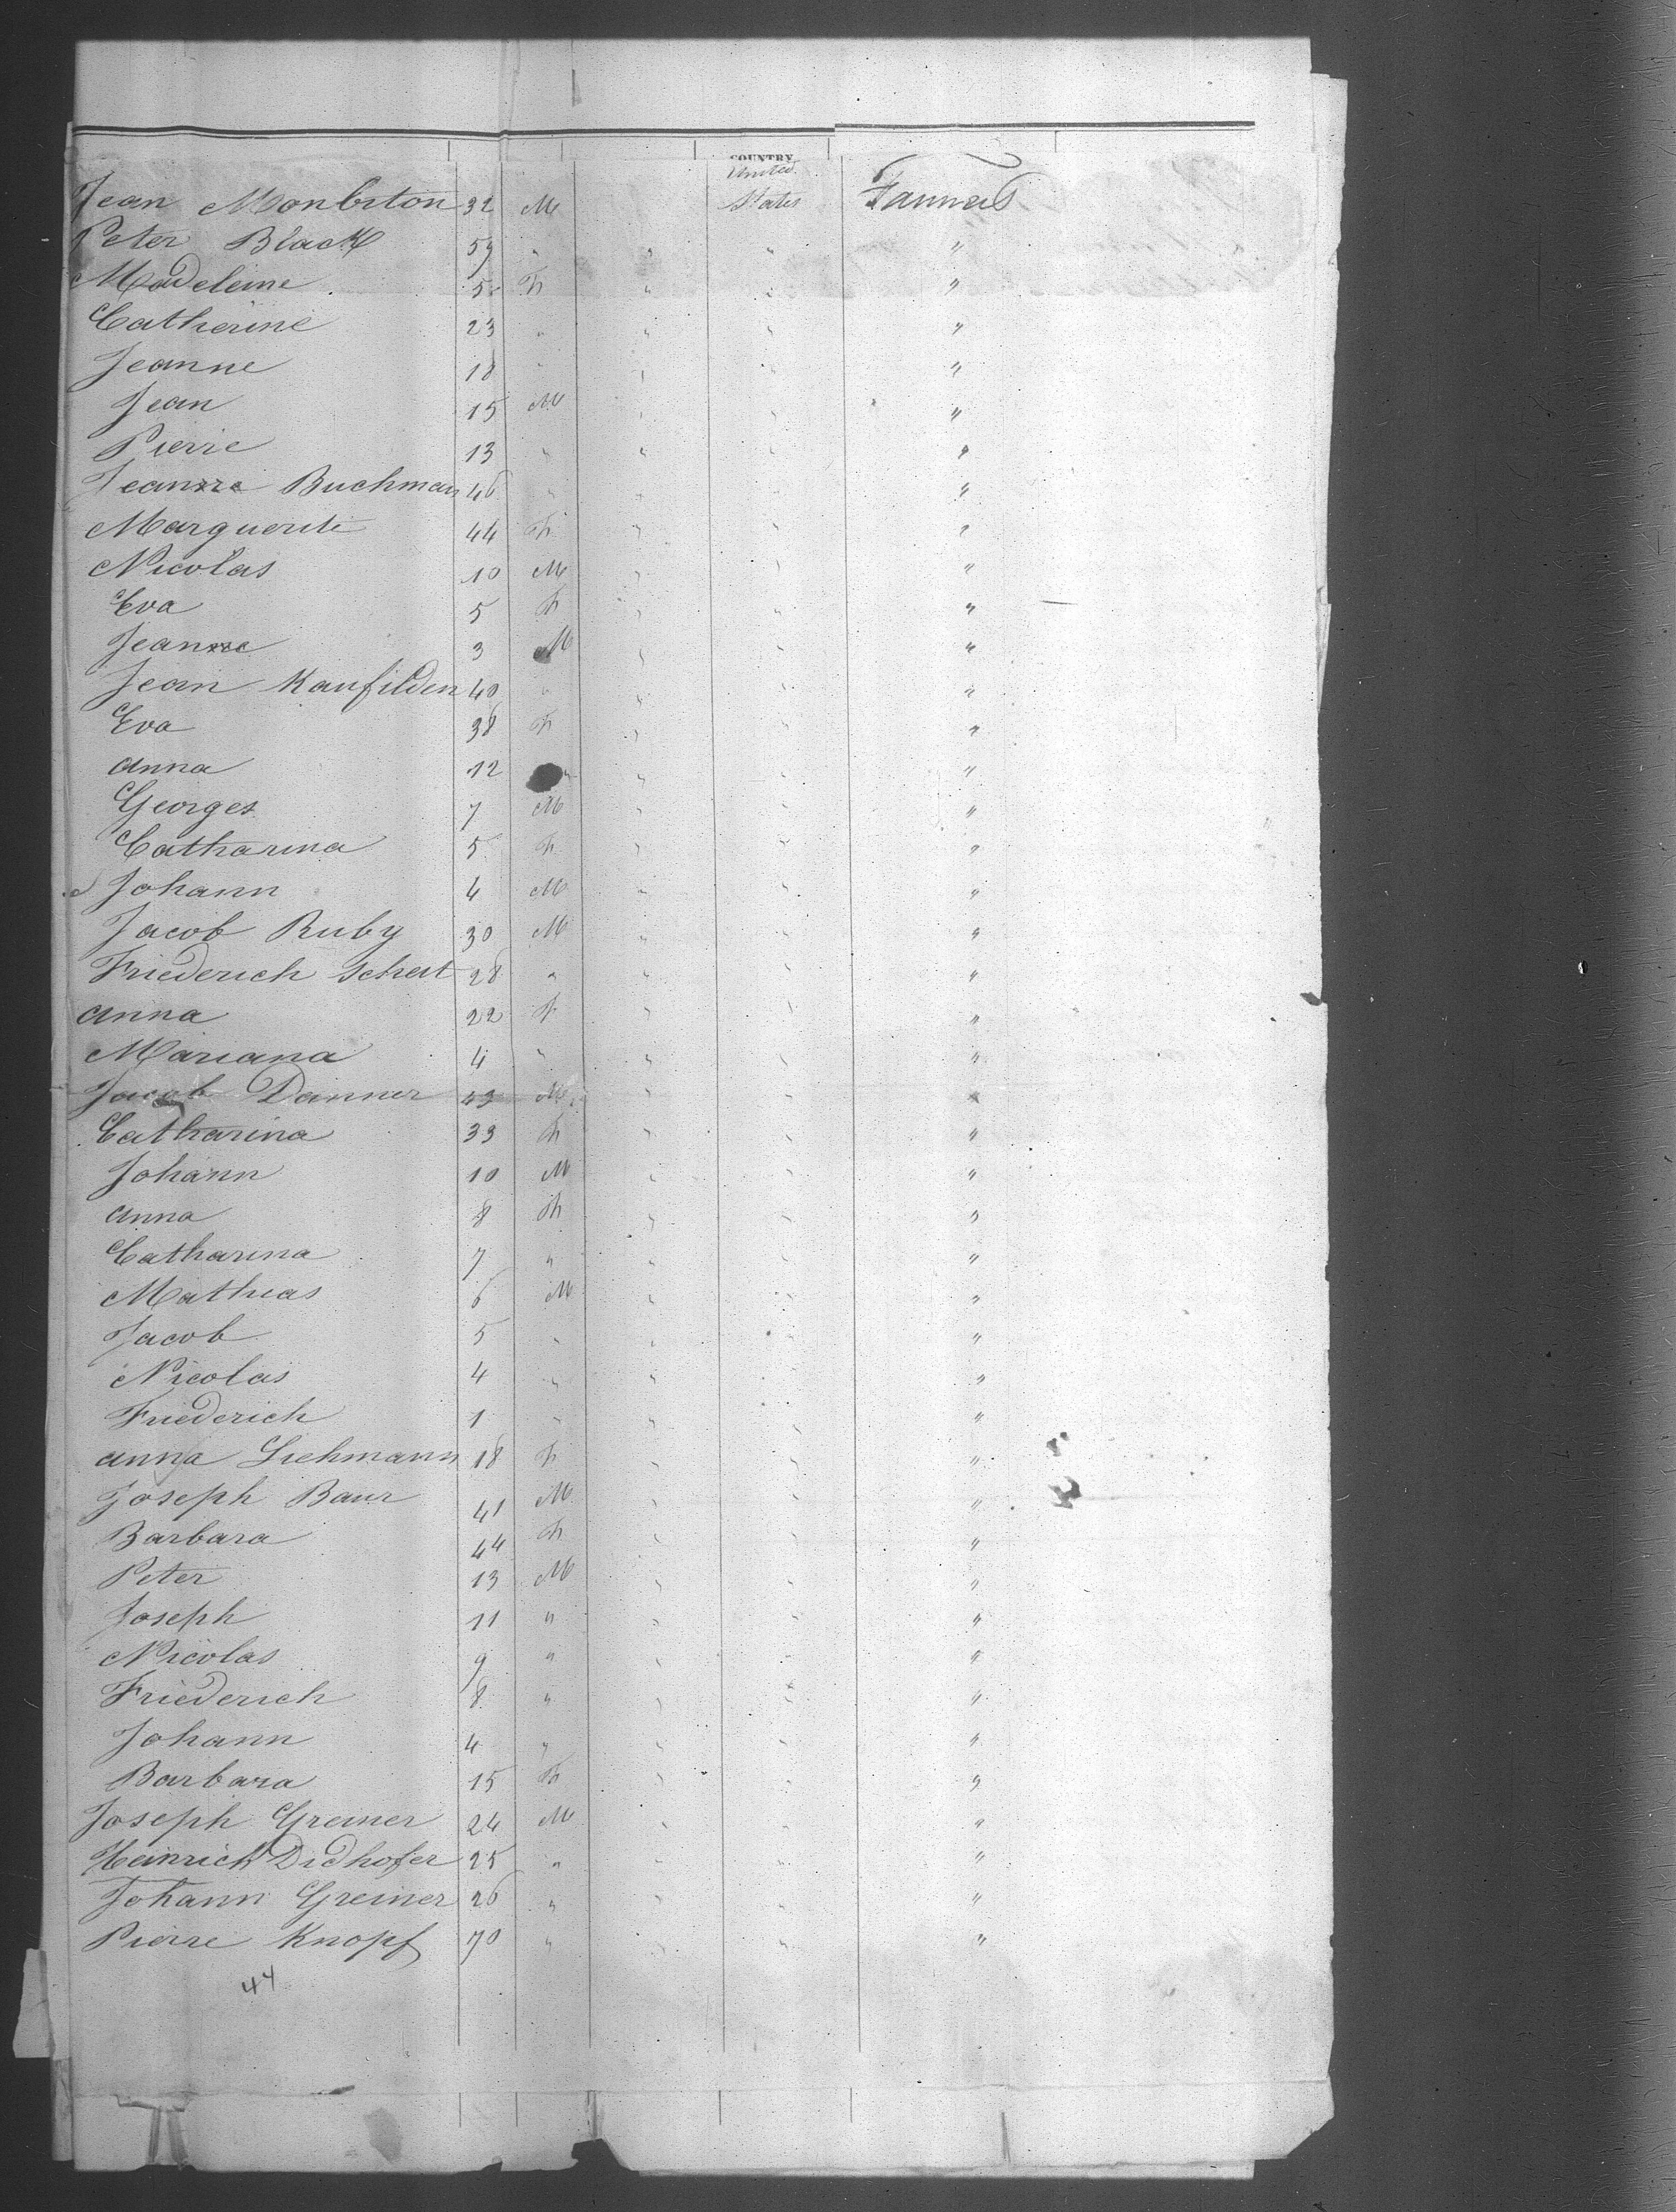 COUNTRY
United
Jean Monbriton 32 M States Farmers
Peter Black 59 " " " "
Madeleine 5 F " " "
Catherine 23 " " " "
Jeanne 18 " " " "
Jean 15 M " " "
Pierre 13 " " " "
Jean Buchman 46 " " " "
Marguerite 44 F " " "
Nicolas 10 M " " "
Eva 5 F " " "
Jean 3 M " " "
Jean Kaufilden 40 " " " "
Eva 38 F " " "
Anna 12 " " " "
Georges 7 M " " "
Catharina 5 F " " "
Johann 4 M " " "
Jacob Ruby 30 M " " "
Friederich Schert 28 " " " "
Anna 22 F " " "
Mariana 4 " " " "
Jacob Danner 43 M " " "
Catharina 33 F " " "
Johann 10 M " " "
Anna 8 F " " "
Catharina 7 " " " "
Mathias 6 M " " "
Jacob 5 " " " "
Nicolas 4 " " " "
Friederich 1 " " " "
Anna Liehmann 18 F " " "
Joseph Baur 41 M " " "
Barbara 44 F " " "
Peter 13 M " " "
Joseph 11 " " " "
Nicolas 9 " " " "
Friederich 8 " " " "
Johann 4 " " " "
Barbara 15 F " " "
Joseph Greiner 24 M " " "
Heinrich Didhofer 25 " " " "
Johann Greiner 26 " " " "
Pierre Knopf 70 " " " "
44